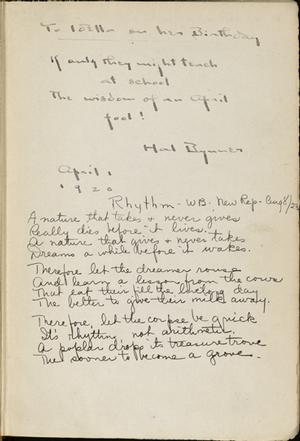 To Idella on her Birthday
If only they might teach
at school
The wisdom of an April
fool!
Hal Bynner
April 1
1920
Rhythm - W.B. New Rep. Aug 8/23
A nature that takes & never gives
Really dies before it lives.
A nature that gives & never takes
Dreams a while before it wakes.
Therefore let the dreamer rouse
And learn a lesson from the cows
That eat their fill the livelong day
The better to give their milk away.
Therefore, let the corpse be quick
It's rhythm, not arithmetic.
A poplar drops its treasure trove
The sooner to become a grove.